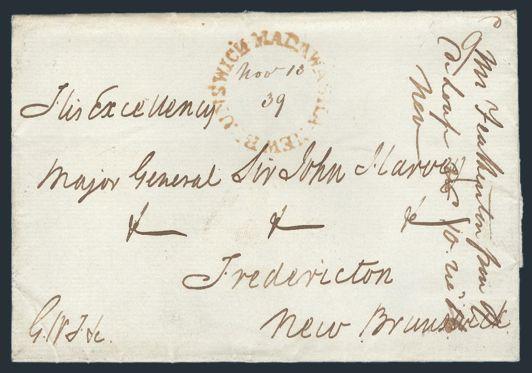 NEW BRUNSWICK MADAWASKA
Nov 13
39
His Excellency
Major General Sir John Harvey
& & &
Fredericton
New Brunswick
G.W.F &c.
Mrs Featherston from
New